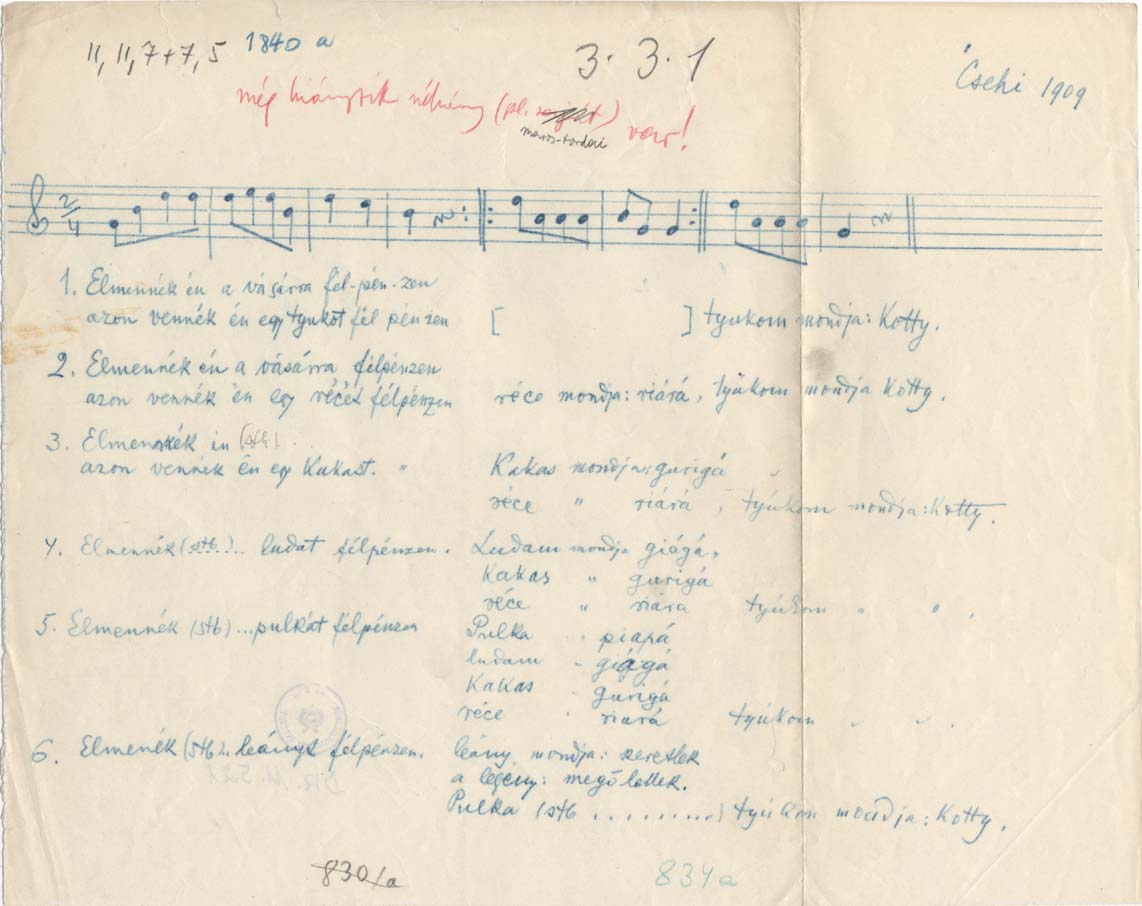 11, 11, 7+7, 5 1840 a 3. 3. 1 Csehi 1909
még hiányzik néhány (pl. ) var!
maros-tordai
2/4
1. Elmennék én a vásárra fél-pén-zen
azon vennék én egy tyukot fél pénzen [ ] tyukom mondja: Kotty.
2. Elmennék én a vásárra félpénzen
azon vennék én egy récét félpénzen réce mondja: riárá, tyúkom mondja Kotty.
3. Elmennék én (stb)
azon vennék én egy Kakast. " Kakas mondja: gurigá
réce " riárá, tyúkom mondja: Kotty.
4. Elmennék (stb)... ludat félpénzen. Ludam mondja giágá,
Kakas " gurigá
réce " riára tyúkom " " .
5. Elmennék (stb)...pulkát félpénzen Pulka " piapá
ludam " giágá
Kakas " gurigá
réce " riará tyúkom " " "
6. Elmenék (stb). leányt félpénzen. leány mondja: szeretlek
a legény: megölellek.
Pulka (stb ........) tyúkom mondja: Kotty.
830/a 834 a